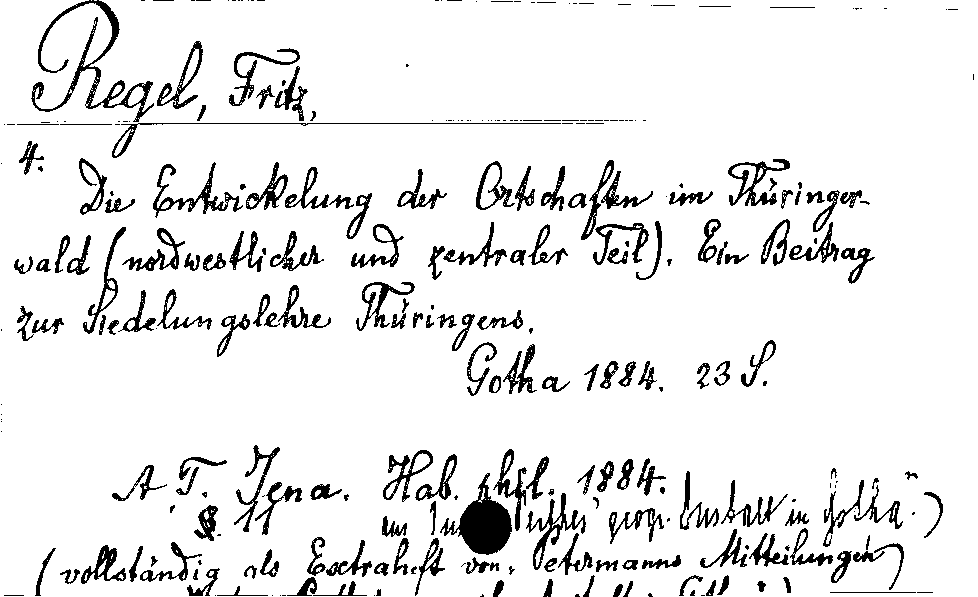 Regel, Fritz,
4.
Die Entwickelung der Ortschaften im Thüringer-
wald (nordwestlicher und zentraler Teil). Ein Beitrag
zur Siedelungslehre Thüringens.
Gotha 1884. 23 S.
A. T. Jena. Hab. phil. 1884.
S. 11 geogr. Anstalt in Gotha".)
(vollständig als Extraheft von Petermanns Mitteilungen)